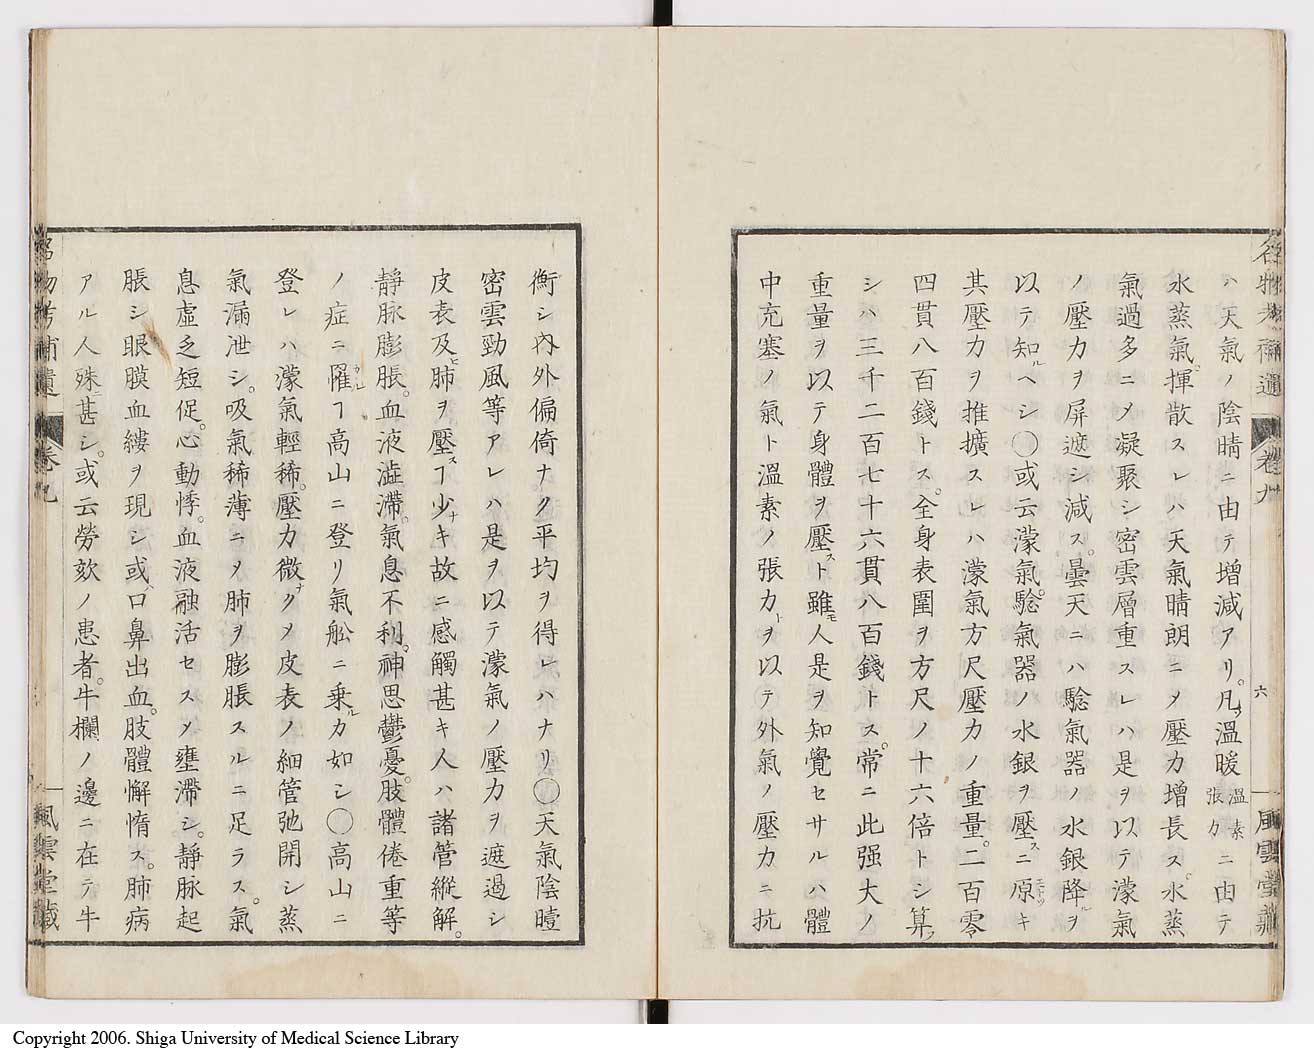 名物考補遺 卷九 六 風雲堂藏
ハ天氣ノ陰晴ニ由テ増減アリ。凡ソ溫暖溫素張力ニ由テ
水蒸氣揮散スレハ天氣晴朗ニメ壓力増長ス。水蒸
氣過多ニメ凝聚シ密雲層重スレハ是ヲ以テ濛氣
ノ壓力ヲ屏遮シ減ス。曇天ニハ驗氣器ノ水銀降ルヲ
以テ知ルヘシ〇或云濛氣。驗氣器ノ水銀ヲ壓スニ原キ
其壓力ヲ推擴スレハ濛氣方尺壓力ノ重量。二百零
四貫八百錢トス。全身表圍ヲ方尺ノ十六倍トシ算フ
シハ三千二百七十六貫八百錢トス。常ニ此强大ノ
重量ヲ以テ身體ヲ壓スト雖モ人是ヲ知覺セサルハ體
中充塞ノ氣ト溫素ノ張力トヲ以テ外氣ノ壓力ニ抗
衡シ內外偏倚ナク平均ヲ得レハナリ〇天氣陰曀
密雲勁風等アレハ是ヲ以テ濛氣ノ壓力ヲ遮過シ
皮表及ヒ肺ヲ壓スヿ少ナキ故ニ感觸甚キ人ハ諸管縱解。
靜脉膨脹。血液澁滯。氣息不利。神思鬱憂。肢體倦重等
ノ症ニ罹カルヿ高山ニ登リ氣舩ニ乗ルカ如シ〇高山ニ
登レハ濛氣輕稀。壓力微ナクメ皮表ノ細管弛開シ蒸
氣漏泄シ。吸氣稀薄ニメ肺ヲ膨脹スルニ足ラス。氣
息虛乏短促。心動悸。血液融活セスメ壅滯シ。靜脉起
脹シ眼膜血縷ヲ現シ或ハ口鼻出血。肢體懈惰ス。肺病
アル人殊ニ甚シ。或云勞欬ノ患者。牛欄ノ邊ニ在テ牛
名物考補遺 卷九 風雲堂藏
Copyright 2006. Shiga University of Medical Science Library